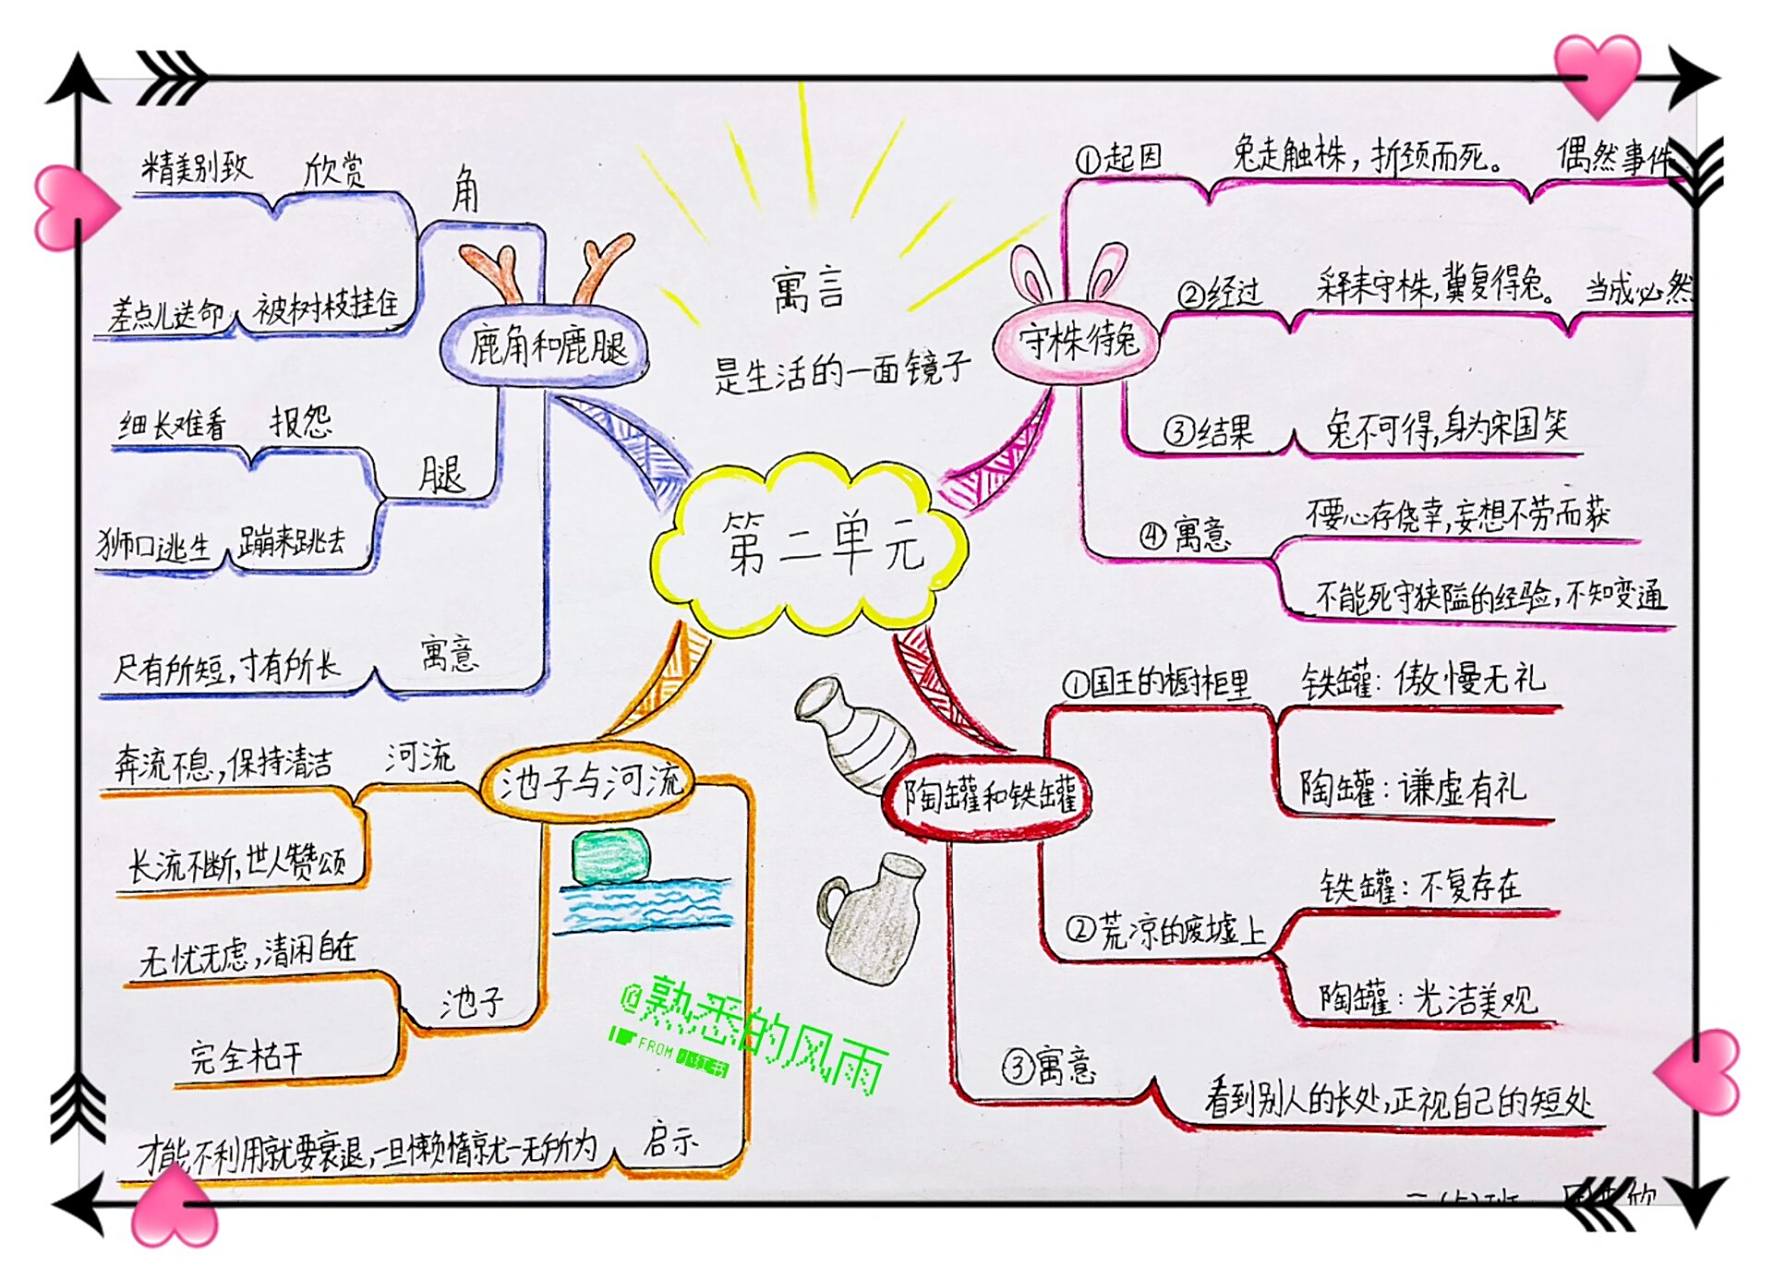 寓言
是生活的一面镜子
第二单元
鹿角和鹿腿
角
欣赏
精美别致
被树枝挂住
差点儿送命
腿
报怨
细长难看
蹦来跳去
狮口逃生
寓意
尺有所短,寸有所长
守株待兔
①起因
兔走触株,折颈而死。
偶然事件
②经过
释耒守株,冀复得兔。
当成必然
③结果
兔不可得,身为宋国笑
④寓意
不要心存侥幸,妄想不劳而获
不能死守狭隘的经验,不知变通
池子与河流
河流
奔流不息,保持清洁
长流不断,世人赞颂
池子
无忧无虑,清闲自在
完全枯干
启示
才能不利用就要衰退,一旦懒惰就一无所为
陶罐和铁罐
①国王的橱柜里
铁罐:傲慢无礼
陶罐:谦虚有礼
②荒凉的废墟上
铁罐:不复存在
陶罐:光洁美观
③寓意
看到别人的长处,正视自己的短处
@熟悉的风雨
FROM 小红书